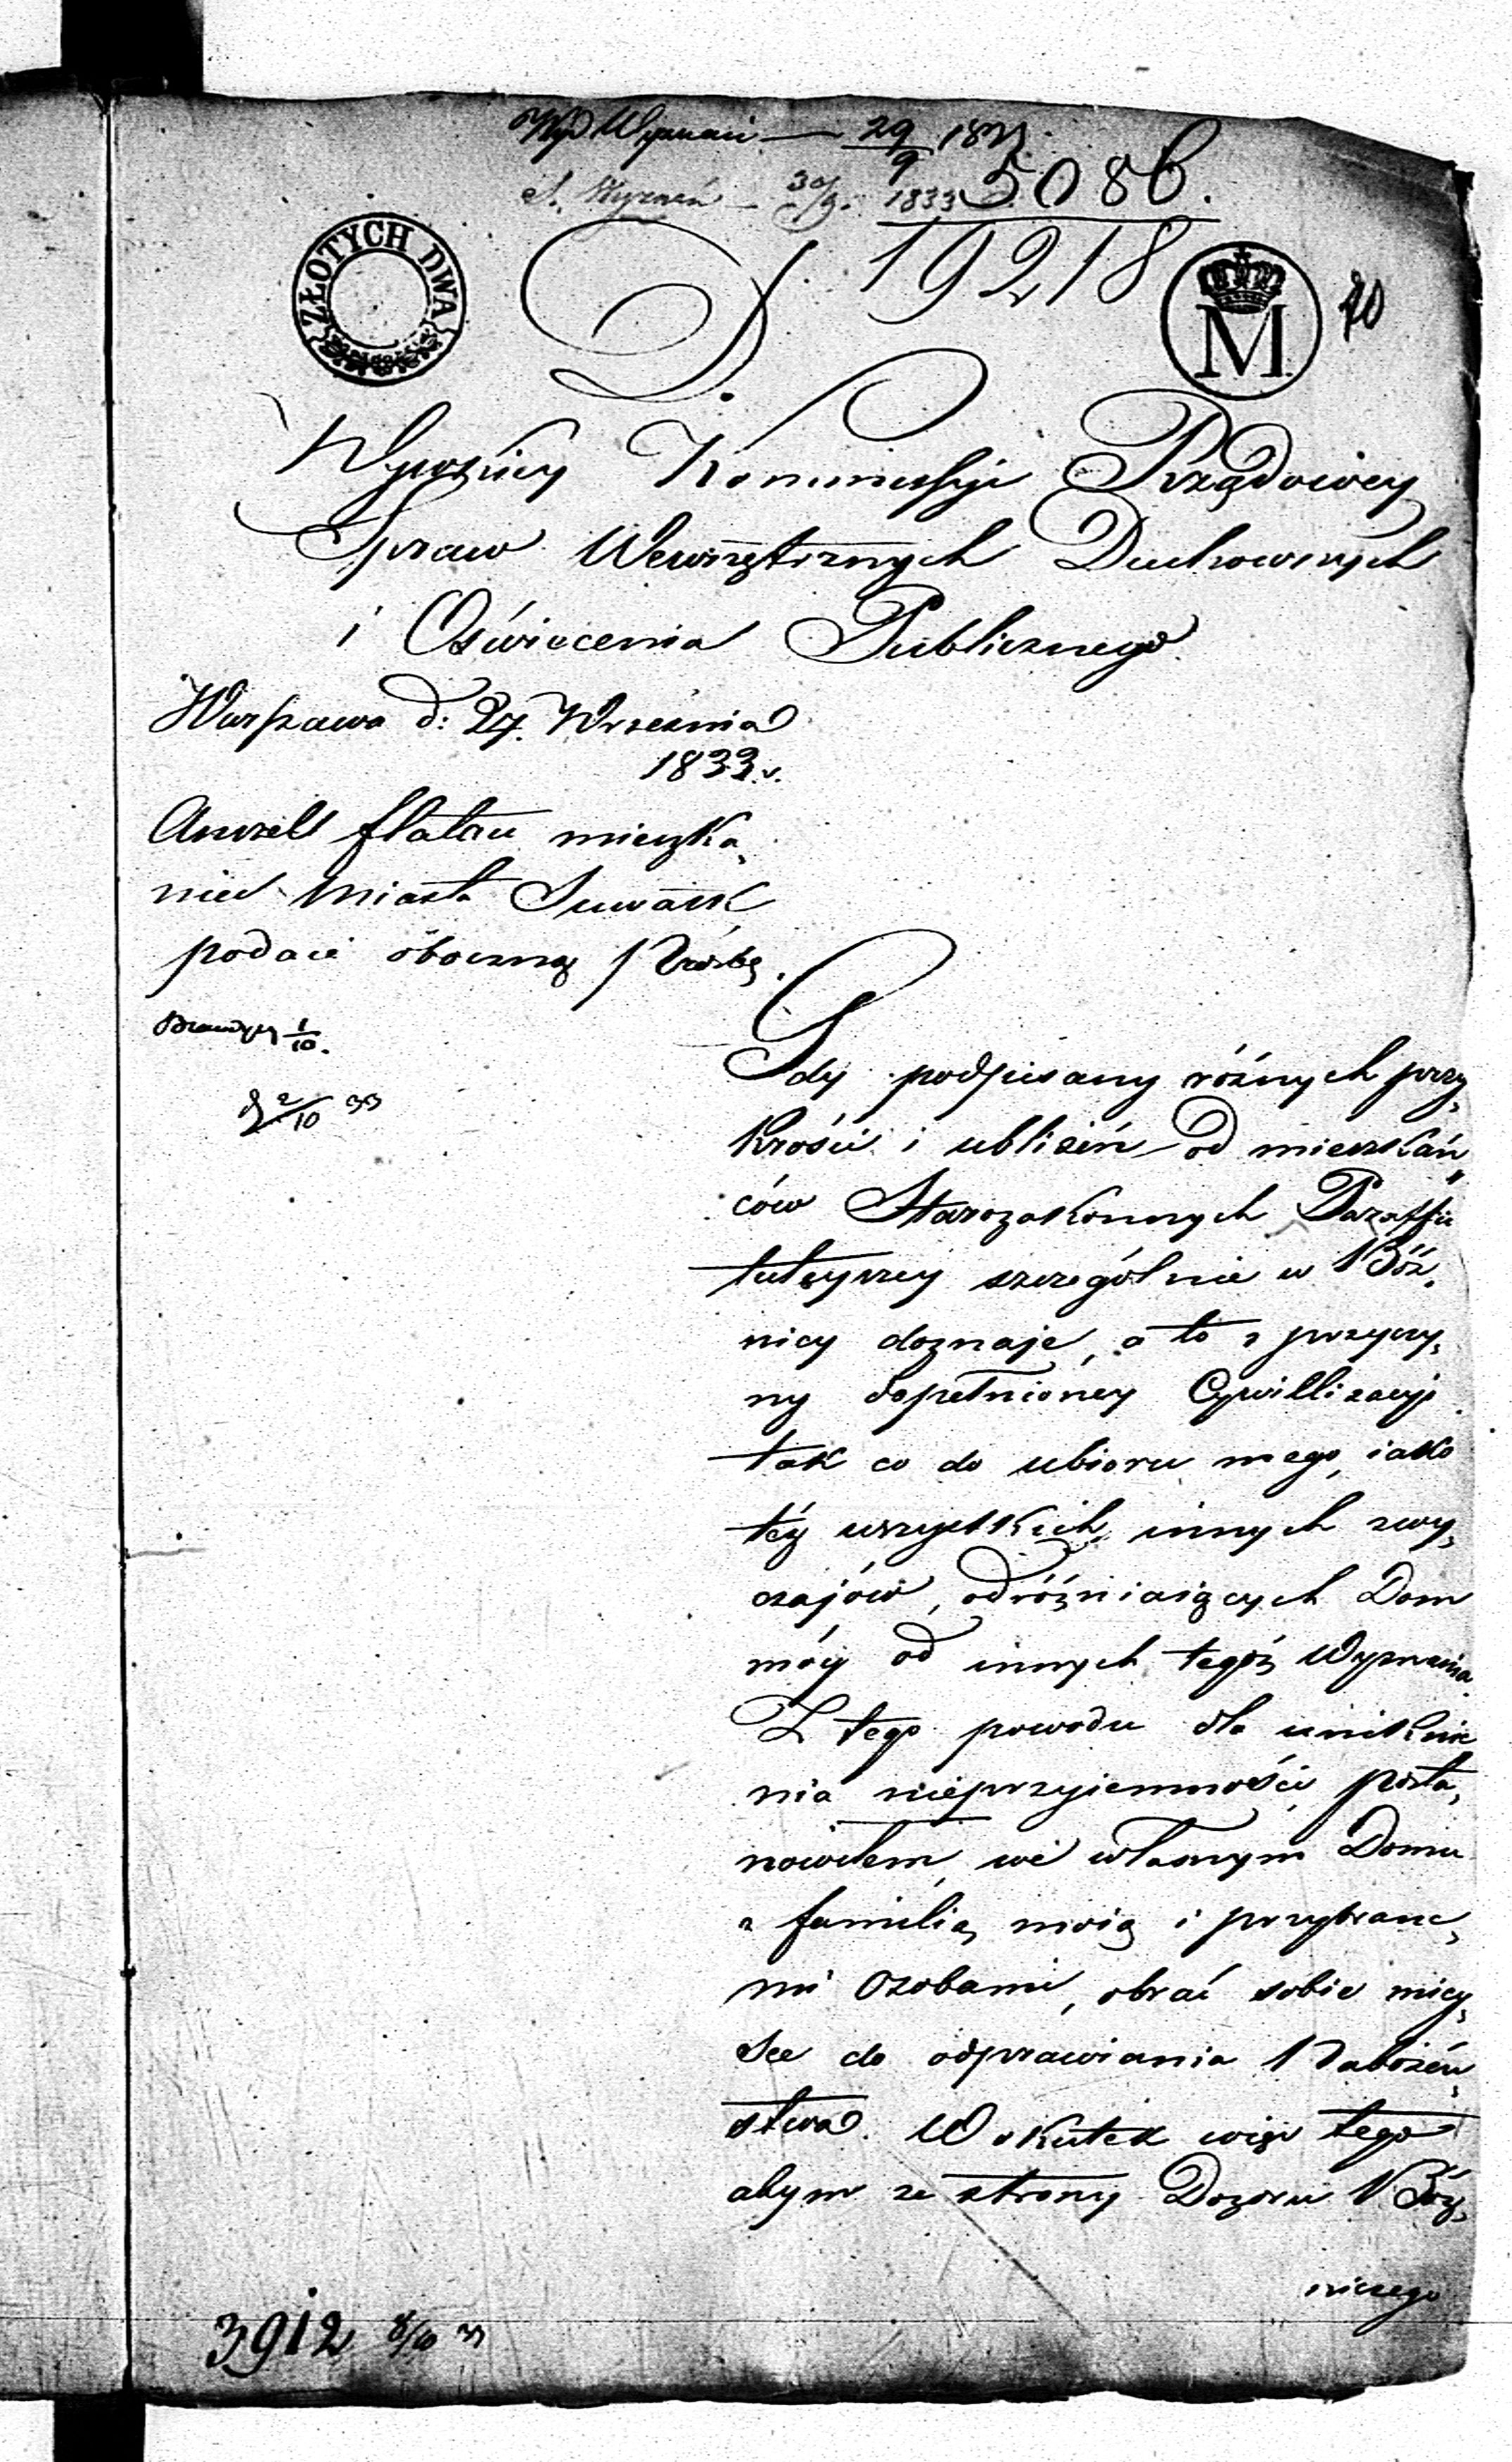 Wyd Wyznań — 29/9 1833.
S. Wyznań — 30/9. 1833
5086.
19218
ZŁOTYCH DWA
M
70
D.
Wysokiey Kommissyi Rządowey
Spraw Wewnętrznych Duchownych
i Oświecenia Publicznego
Warszawa d: 27. Września
1833 r.
Anszel flatau mieszka„
niec Miasta Suwałk
podaie oboczną Prośbę.
1/10.
2/10 33
Gdy podpisany róźnych przy„
krości i ubliźeń od mieszkań„
ców Starozakonnych Paraffii
tuteyszey szczególnie w Bóż„
nicy doznaje, a to z przyczy„
ny dopełnioney Cywillizacyi
tak co do ubioru mego, iako
téż wszystkich innych zwy„
czajów, odróżniaiących Dom
móy od innych tegóż Wyznania.
Z tego powodu dla uniknie
nia nieprzyiemności, posta„
nowiłem, we własnym Domu
z familią moią i przybrane„
mi Osobami, obrać sobie miey„
sce do odprawiania Naboźeń„
stwa. W skutek więc tego
abym ze strony Dozoru Bóż„
niczego
3912 8/10 33